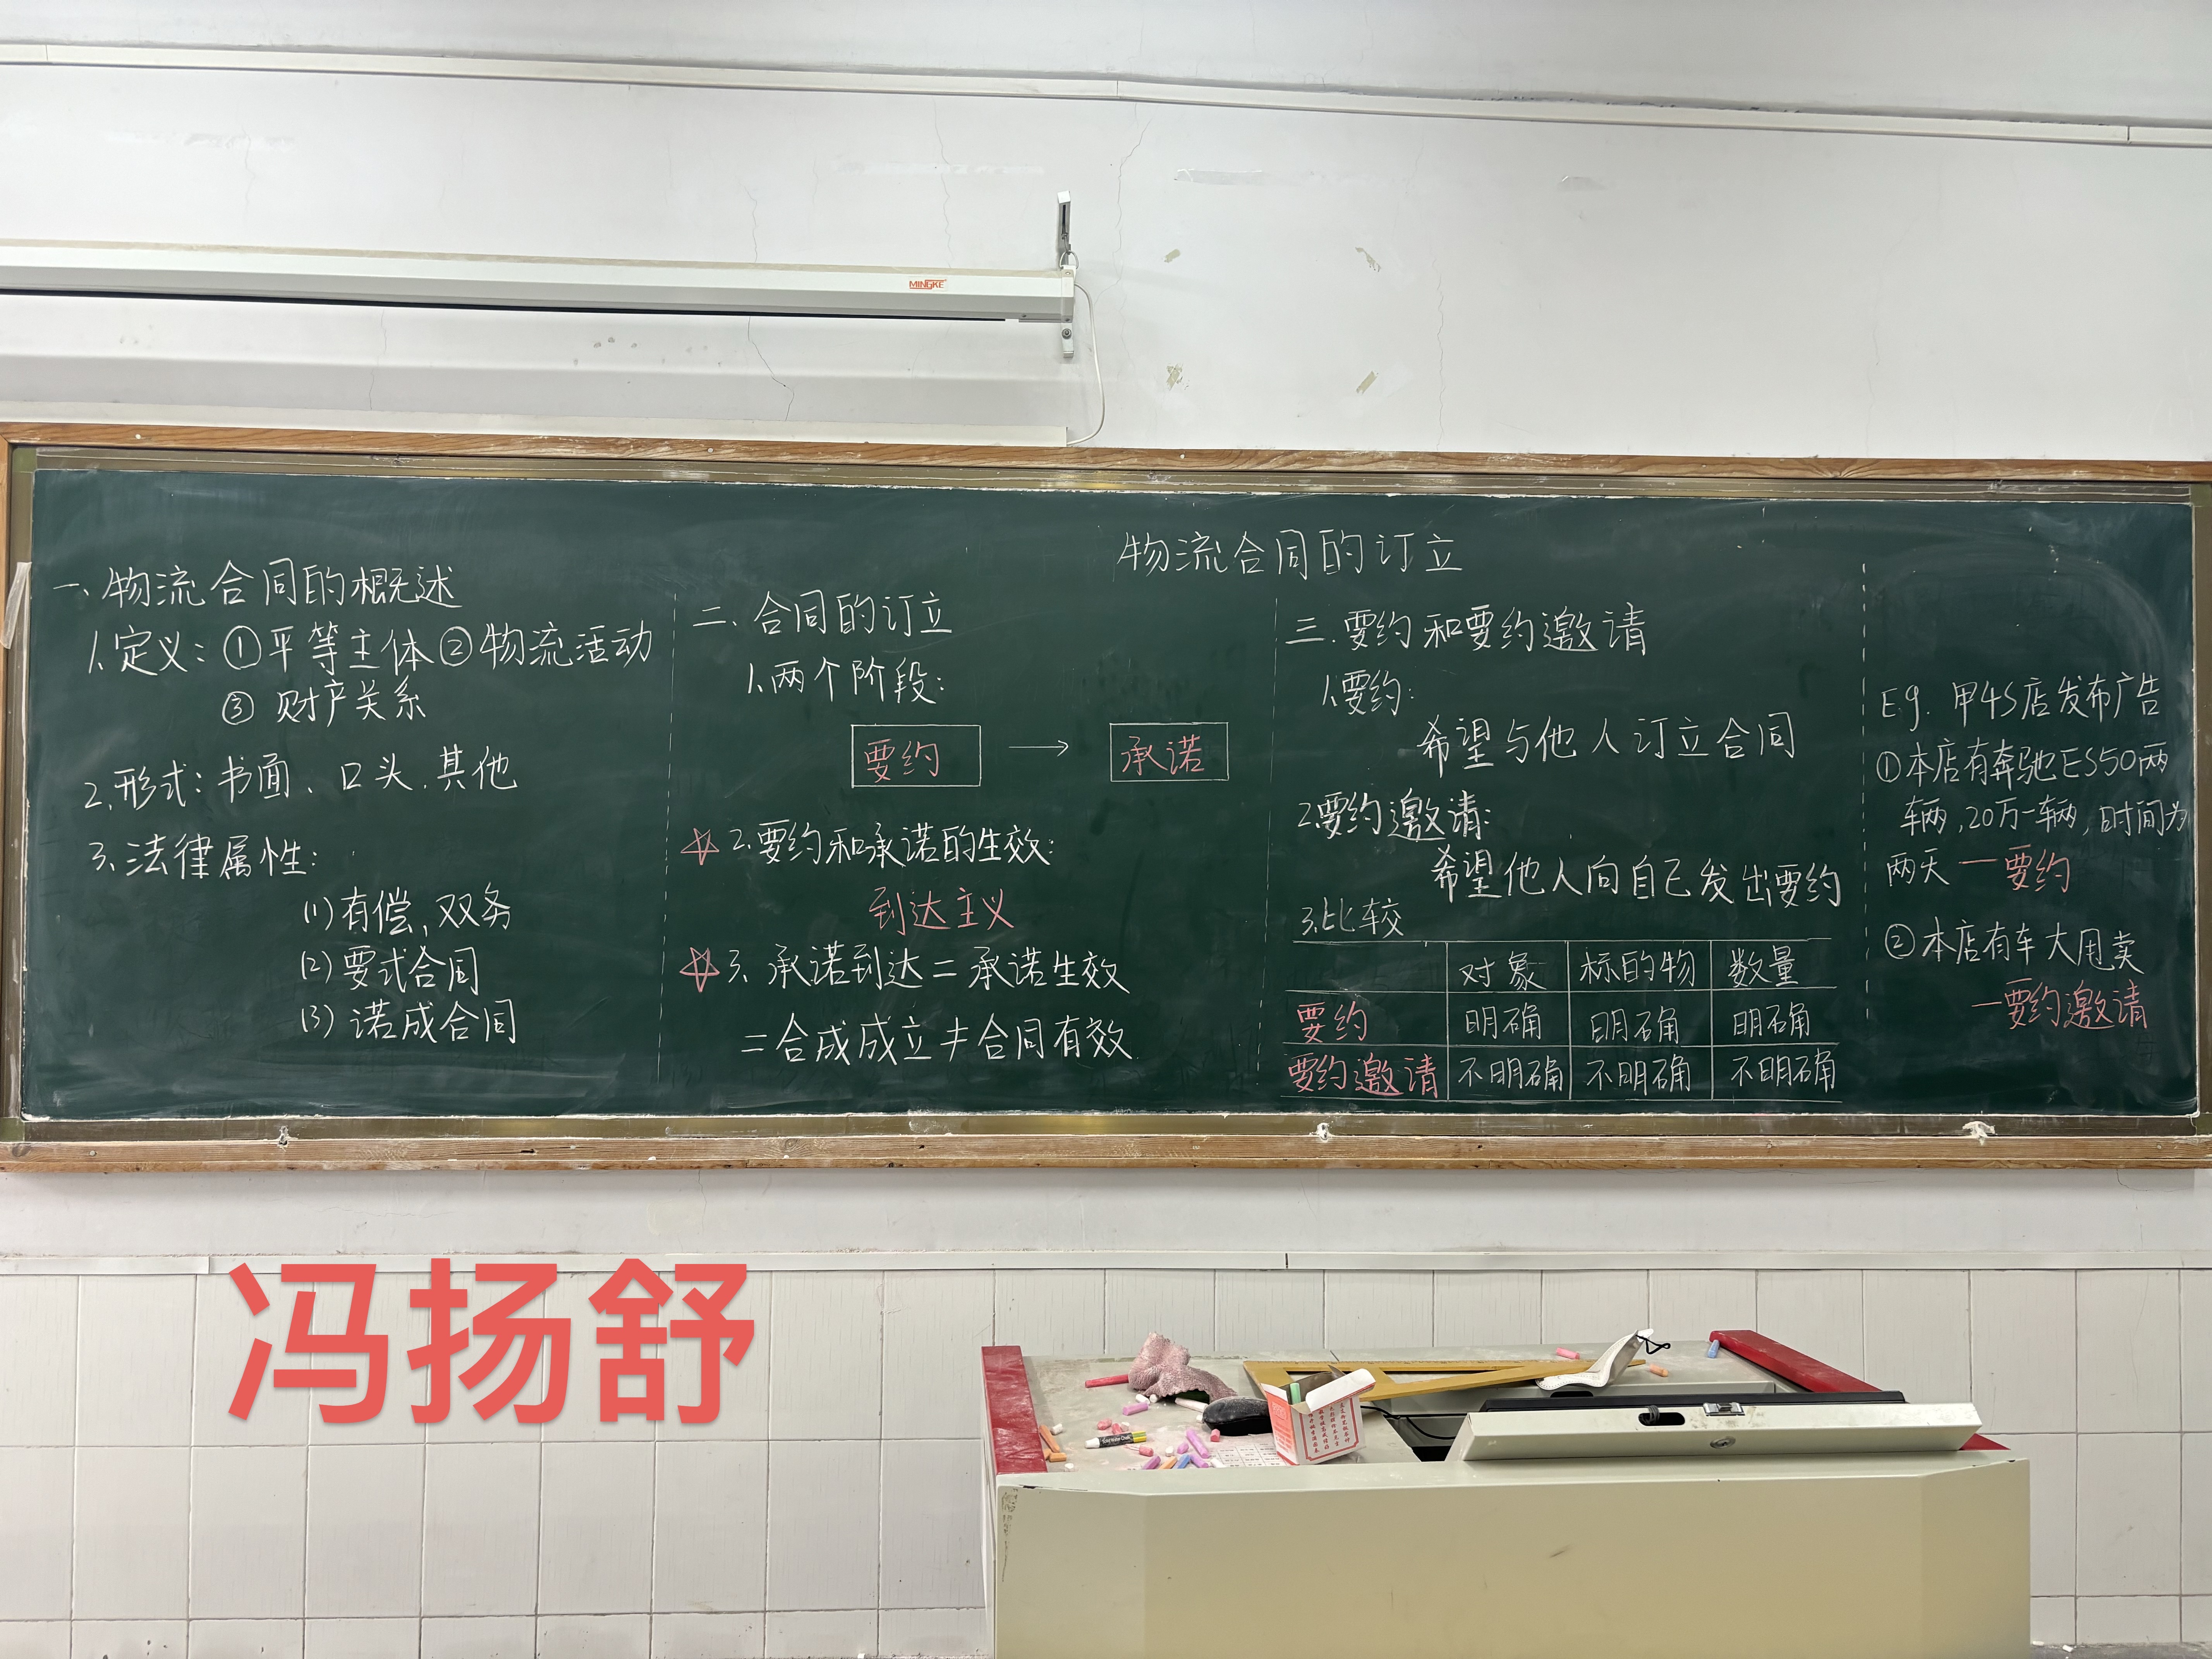 MINGKE
物流合同的订立
一、物流合同的概述
1.定义：①平等主体②物流活动
③财产关系
2.形式：书面、口头.其他
3.法律属性：
(1)有偿、双务
(2)要式合同
(3)诺成合同
二、合同的订立
1.两个阶段：
要约 → 承诺
☆2.要约和承诺的生效：
到达主义
☆3.承诺到达=承诺生效
=合成成立≠合同有效
三.要约和要约邀请
1.要约：
希望与他人订立合同
2.要约邀请：
希望他人向自己发出要约
3.比较
对象 标的物 数量
要约 明确 明确 明确
要约邀请 不明确 不明确 不明确
Eg. 甲4S店发布广告
①本店有奔驰ES50两
车两,20万一车两,时间为
两天 —要约
②本店有车大甩卖
—要约邀请
冯扬舒